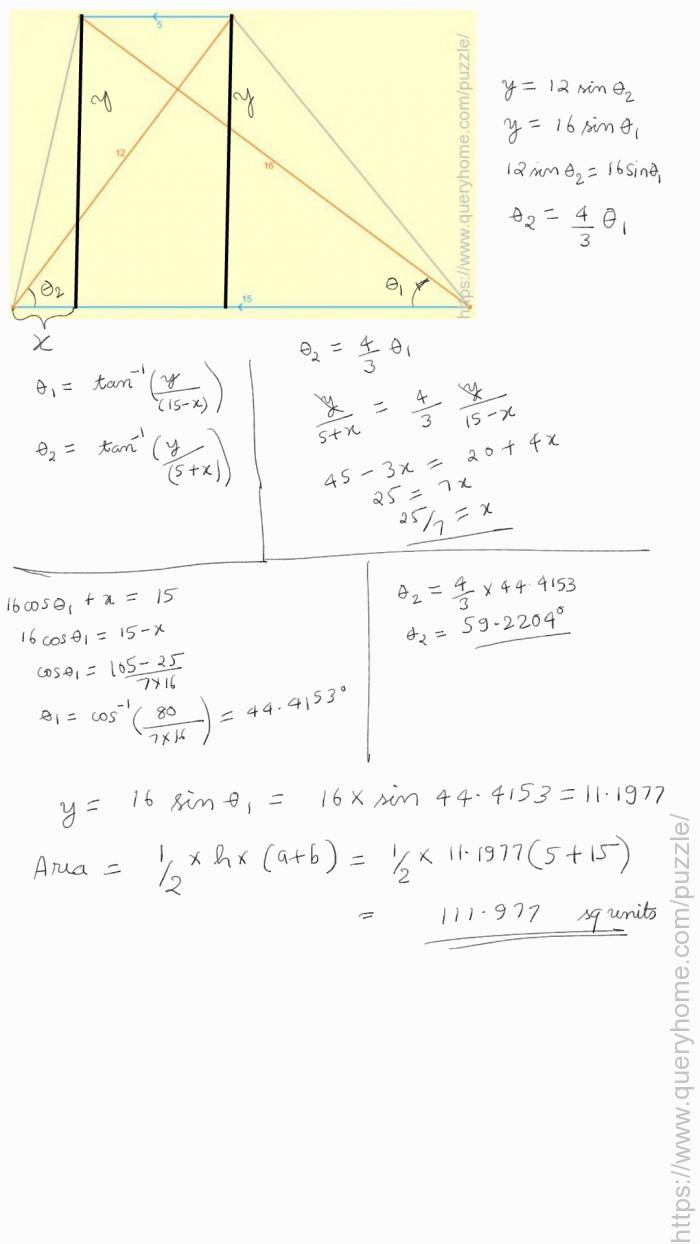 5
y
y
12
16
θ2
θ1
15
x
https://www.queryhome.com/puzzle/
y = 12 sin θ2
y = 16 sin θ1
12 sin θ2 = 16 sin θ1
θ2 = 4/3 θ1
θ1 = tan⁻¹ (y/(15-x))
θ2 = tan⁻¹ (y/(5+x))
θ2 = 4/3 θ1
y/5+x = 4/3 y/15-x
45 - 3x = 20 + 4x
25 = 7x
25/7 = x
16 cos θ1 + x = 15
16 cos θ1 = 15 - x
cos θ1 = 105 - 25/7×16
θ1 = cos⁻¹ (80/7×16) = 44.4153°
θ2 = 4/3 × 44.4153
θ2 = 59.2204°
y = 16 sin θ1 = 16 × sin 44.4153 = 11.1977
Area = 1/2 × h × (a+b) = 1/2 × 11.1977 (5 + 15)
= 111.977 sq units
https://www.queryhome.com/puzzle/